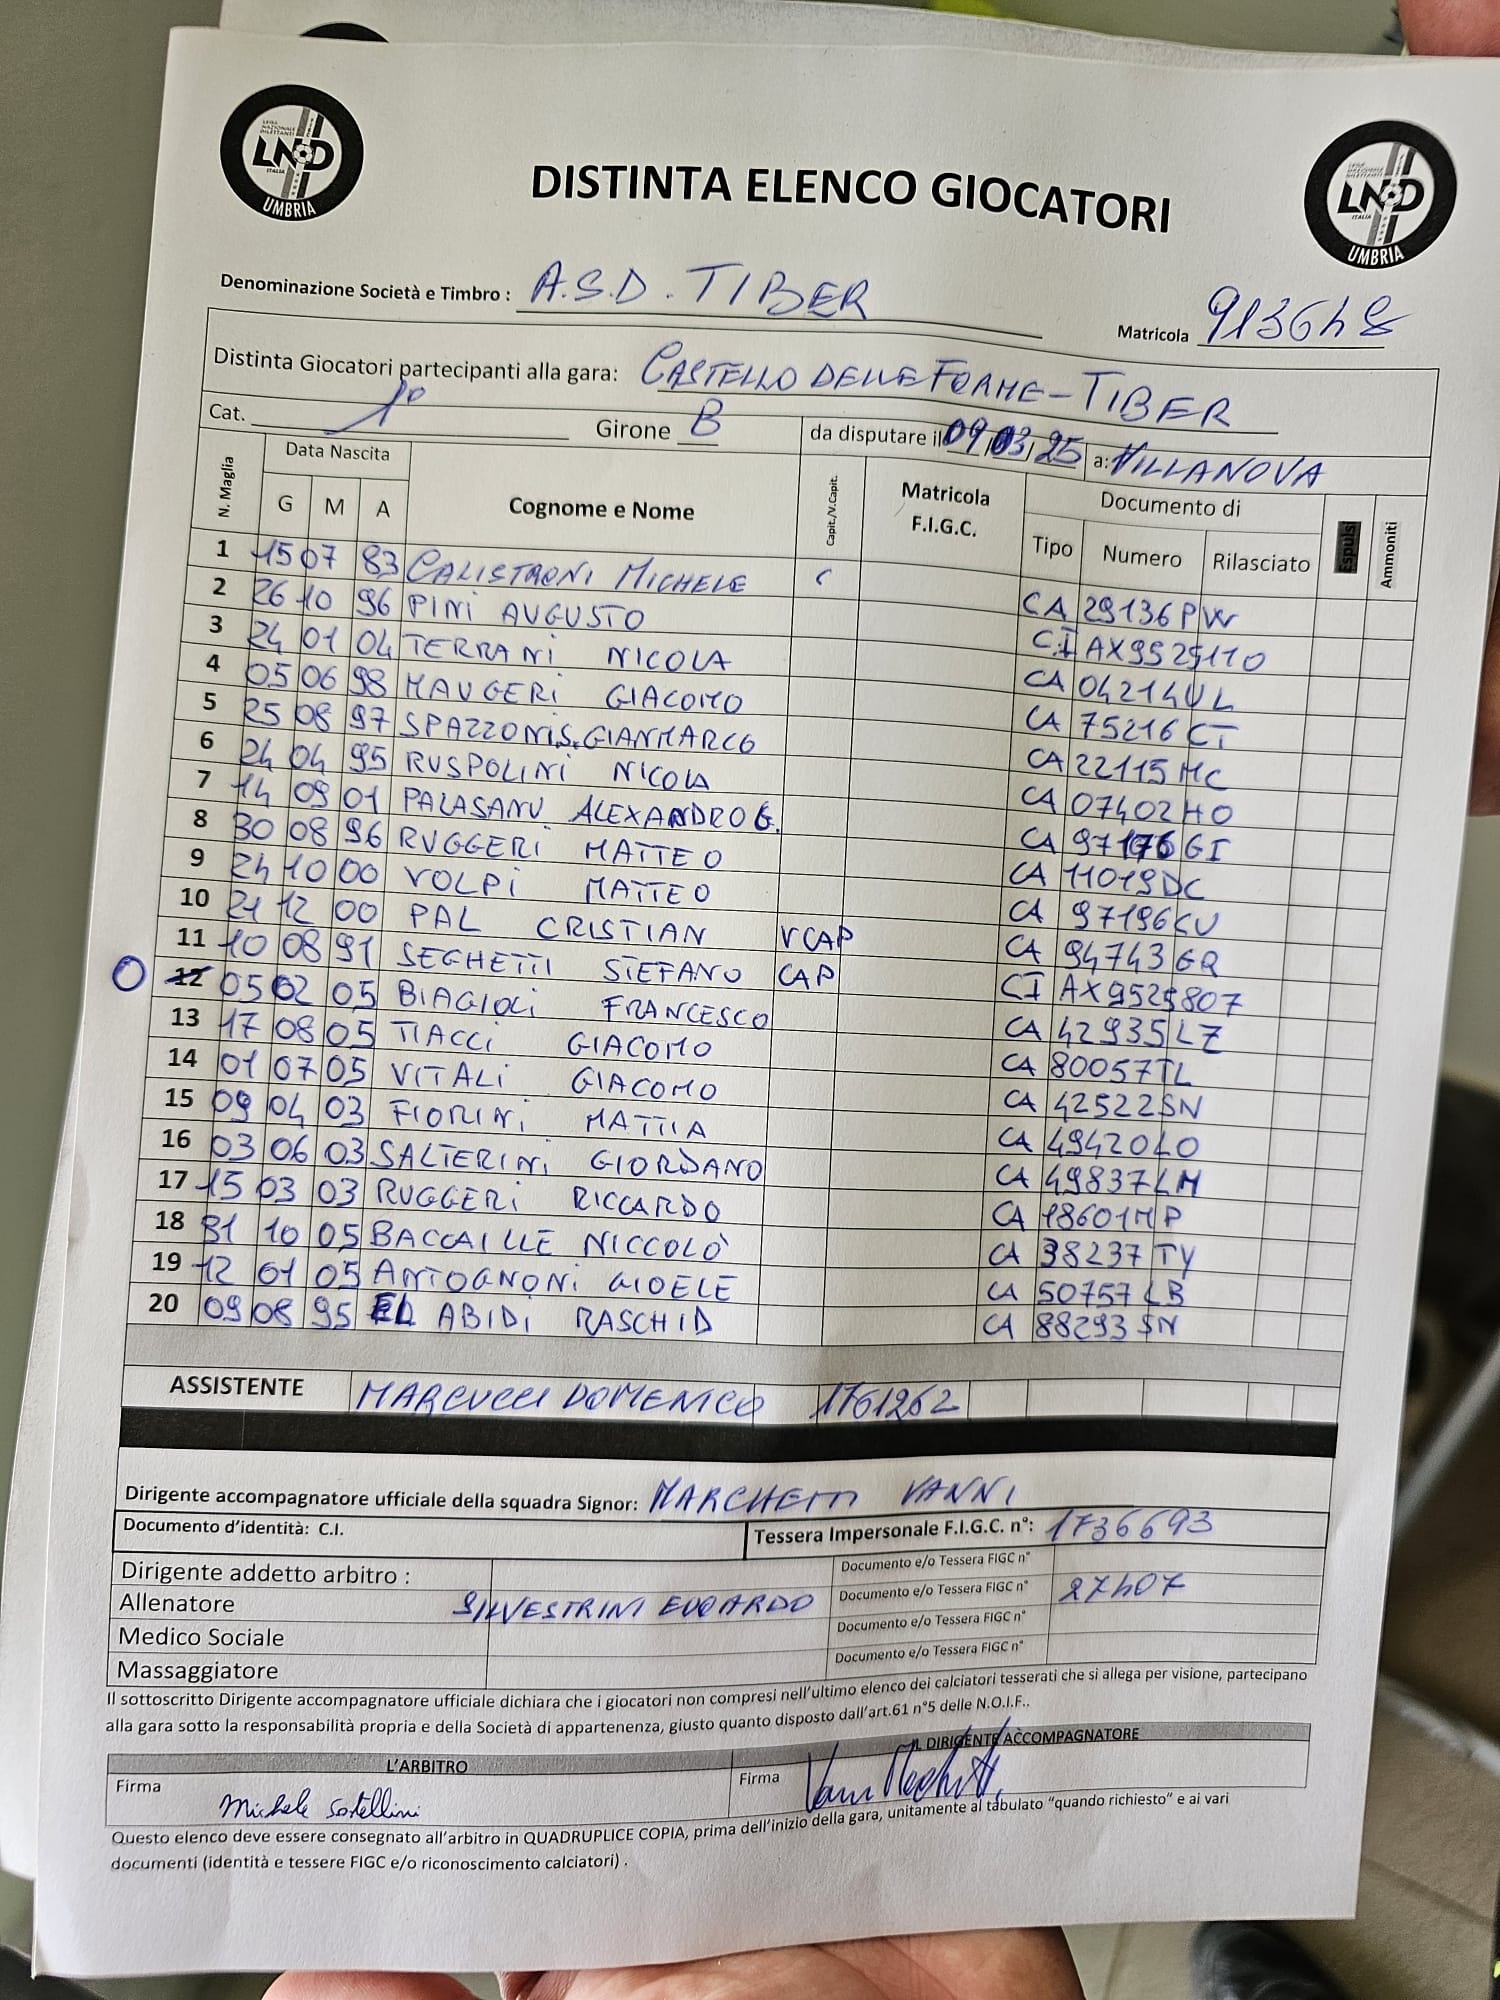 LND
ITALIA
UMBRIA
DISTINTA ELENCO GIOCATORI
LND
ITALIA
UMBRIA
Denominazione Società e Timbro : A.S.D. TIBER
Matricola 913648
Distinta Giocatori partecipanti alla gara: CASTELLO DELLE FORME - TIBER
Cat. 1° Girone B da disputare il 09/03/25 a: VILLANOVA
N. Maglia Data Nascita Cognome e Nome Capit./V.Capit. Matricola F.I.G.C. Documento di Espulsi Ammoniti
G M A Tipo Numero Rilasciato
1 15 07 83 CALISTRONI MICHELE CA 29136PW
2 26 10 96 PINI AUGUSTO CI AX9525110
3 24 01 04 TERRANI NICOLA CA 04214UL
4 05 06 98 MAUGERI GIACOMO CA 75216CT
5 25 08 97 SPAZZONI S. GIANMARCO CA 22115MC
6 24 04 95 RUSPOLINI NICOLA CA 07402HO
7 14 09 01 PALASANU ALEXANDRO G. CA 97176GI
8 30 08 96 RUGGERI MATTEO CA 11019DC
9 24 10 00 VOLPI MATTEO CA 97196KU
10 21 12 00 PAL CRISTIAN VCAP CA 94743GR
11 10 08 91 SEGHETTI STEFANO CAP CI AX9525807
O 12 05 02 05 BIAGIOLI FRANCESCO CA 42935LZ
13 17 08 05 TIACCI GIACOMO CA 80057TL
14 01 07 05 VITALI GIACOMO CA 42522SN
15 09 04 03 FIORINI MATTIA CA 49420LO
16 03 06 03 SALTERINI GIORDANO CA 49837LM
17 15 03 03 RUGGERI RICCARDO CA 18601MP
18 31 10 05 BACCAILLE NICCOLÒ CA 38237TY
19 12 01 05 ANTOGNONI GIOELE CA 50757LB
20 09 08 95 EL ABIDI RASCHID CA 88293SN
ASSISTENTE MARCUCCI DOMENICO 1761262
Dirigente accompagnatore ufficiale della squadra Signor: MARCHETTI VANNI
Documento d'identità: C.I. Tessera Impersonale F.I.G.C. n°: 1736693
Dirigente addetto arbitro : Documento e/o Tessera FIGC n°
Allenatore SILVESTRINI EDOARDO Documento e/o Tessera FIGC n° 27407
Medico Sociale Documento e/o Tessera FIGC n°
Massaggiatore Documento e/o Tessera FIGC n°
Il sottoscritto Dirigente accompagnatore ufficiale dichiara che i giocatori non compresi nell'ultimo elenco dei calciatori tesserati che si allega per visione, partecipano
alla gara sotto la responsabilità propria e della Società di appartenenza, giusto quanto disposto dall'art.61 n°5 delle N.O.I.F..
L'ARBITRO IL DIRIGENTE ACCOMPAGNATORE
Firma Michele Sotellini Firma Vanni Marchetti
Questo elenco deve essere consegnato all'arbitro in QUADRUPLICE COPIA, prima dell'inizio della gara, unitamente al tabulato "quando richiesto" e ai vari
documenti (identità e tessere FIGC e/o riconoscimento calciatori) .